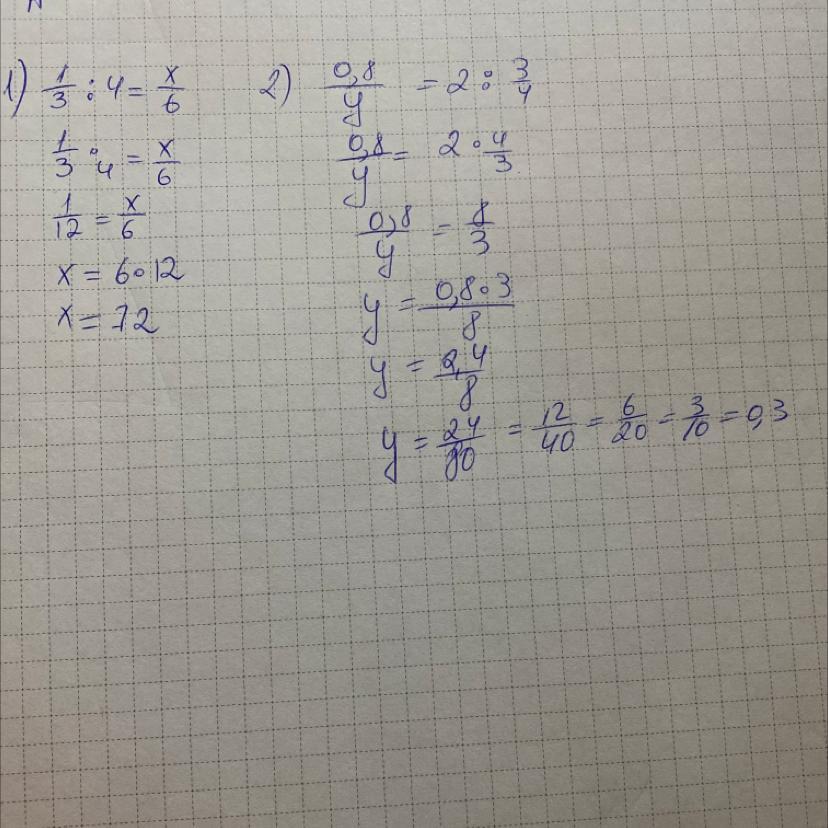 1) 1/3 : 4 = x/6
1/3 · 4 = x/6
1/12 = x/6
x = 6∘12
x = 72
2) 0,8/y = 2 : 3/4
0,8/y = 2 · 4/3
0,8/y = 8/3
y = 0,8∘3/8
y = 2,4/8
y = 24/80 = 12/40 = 6/20 = 3/10 = 0,3